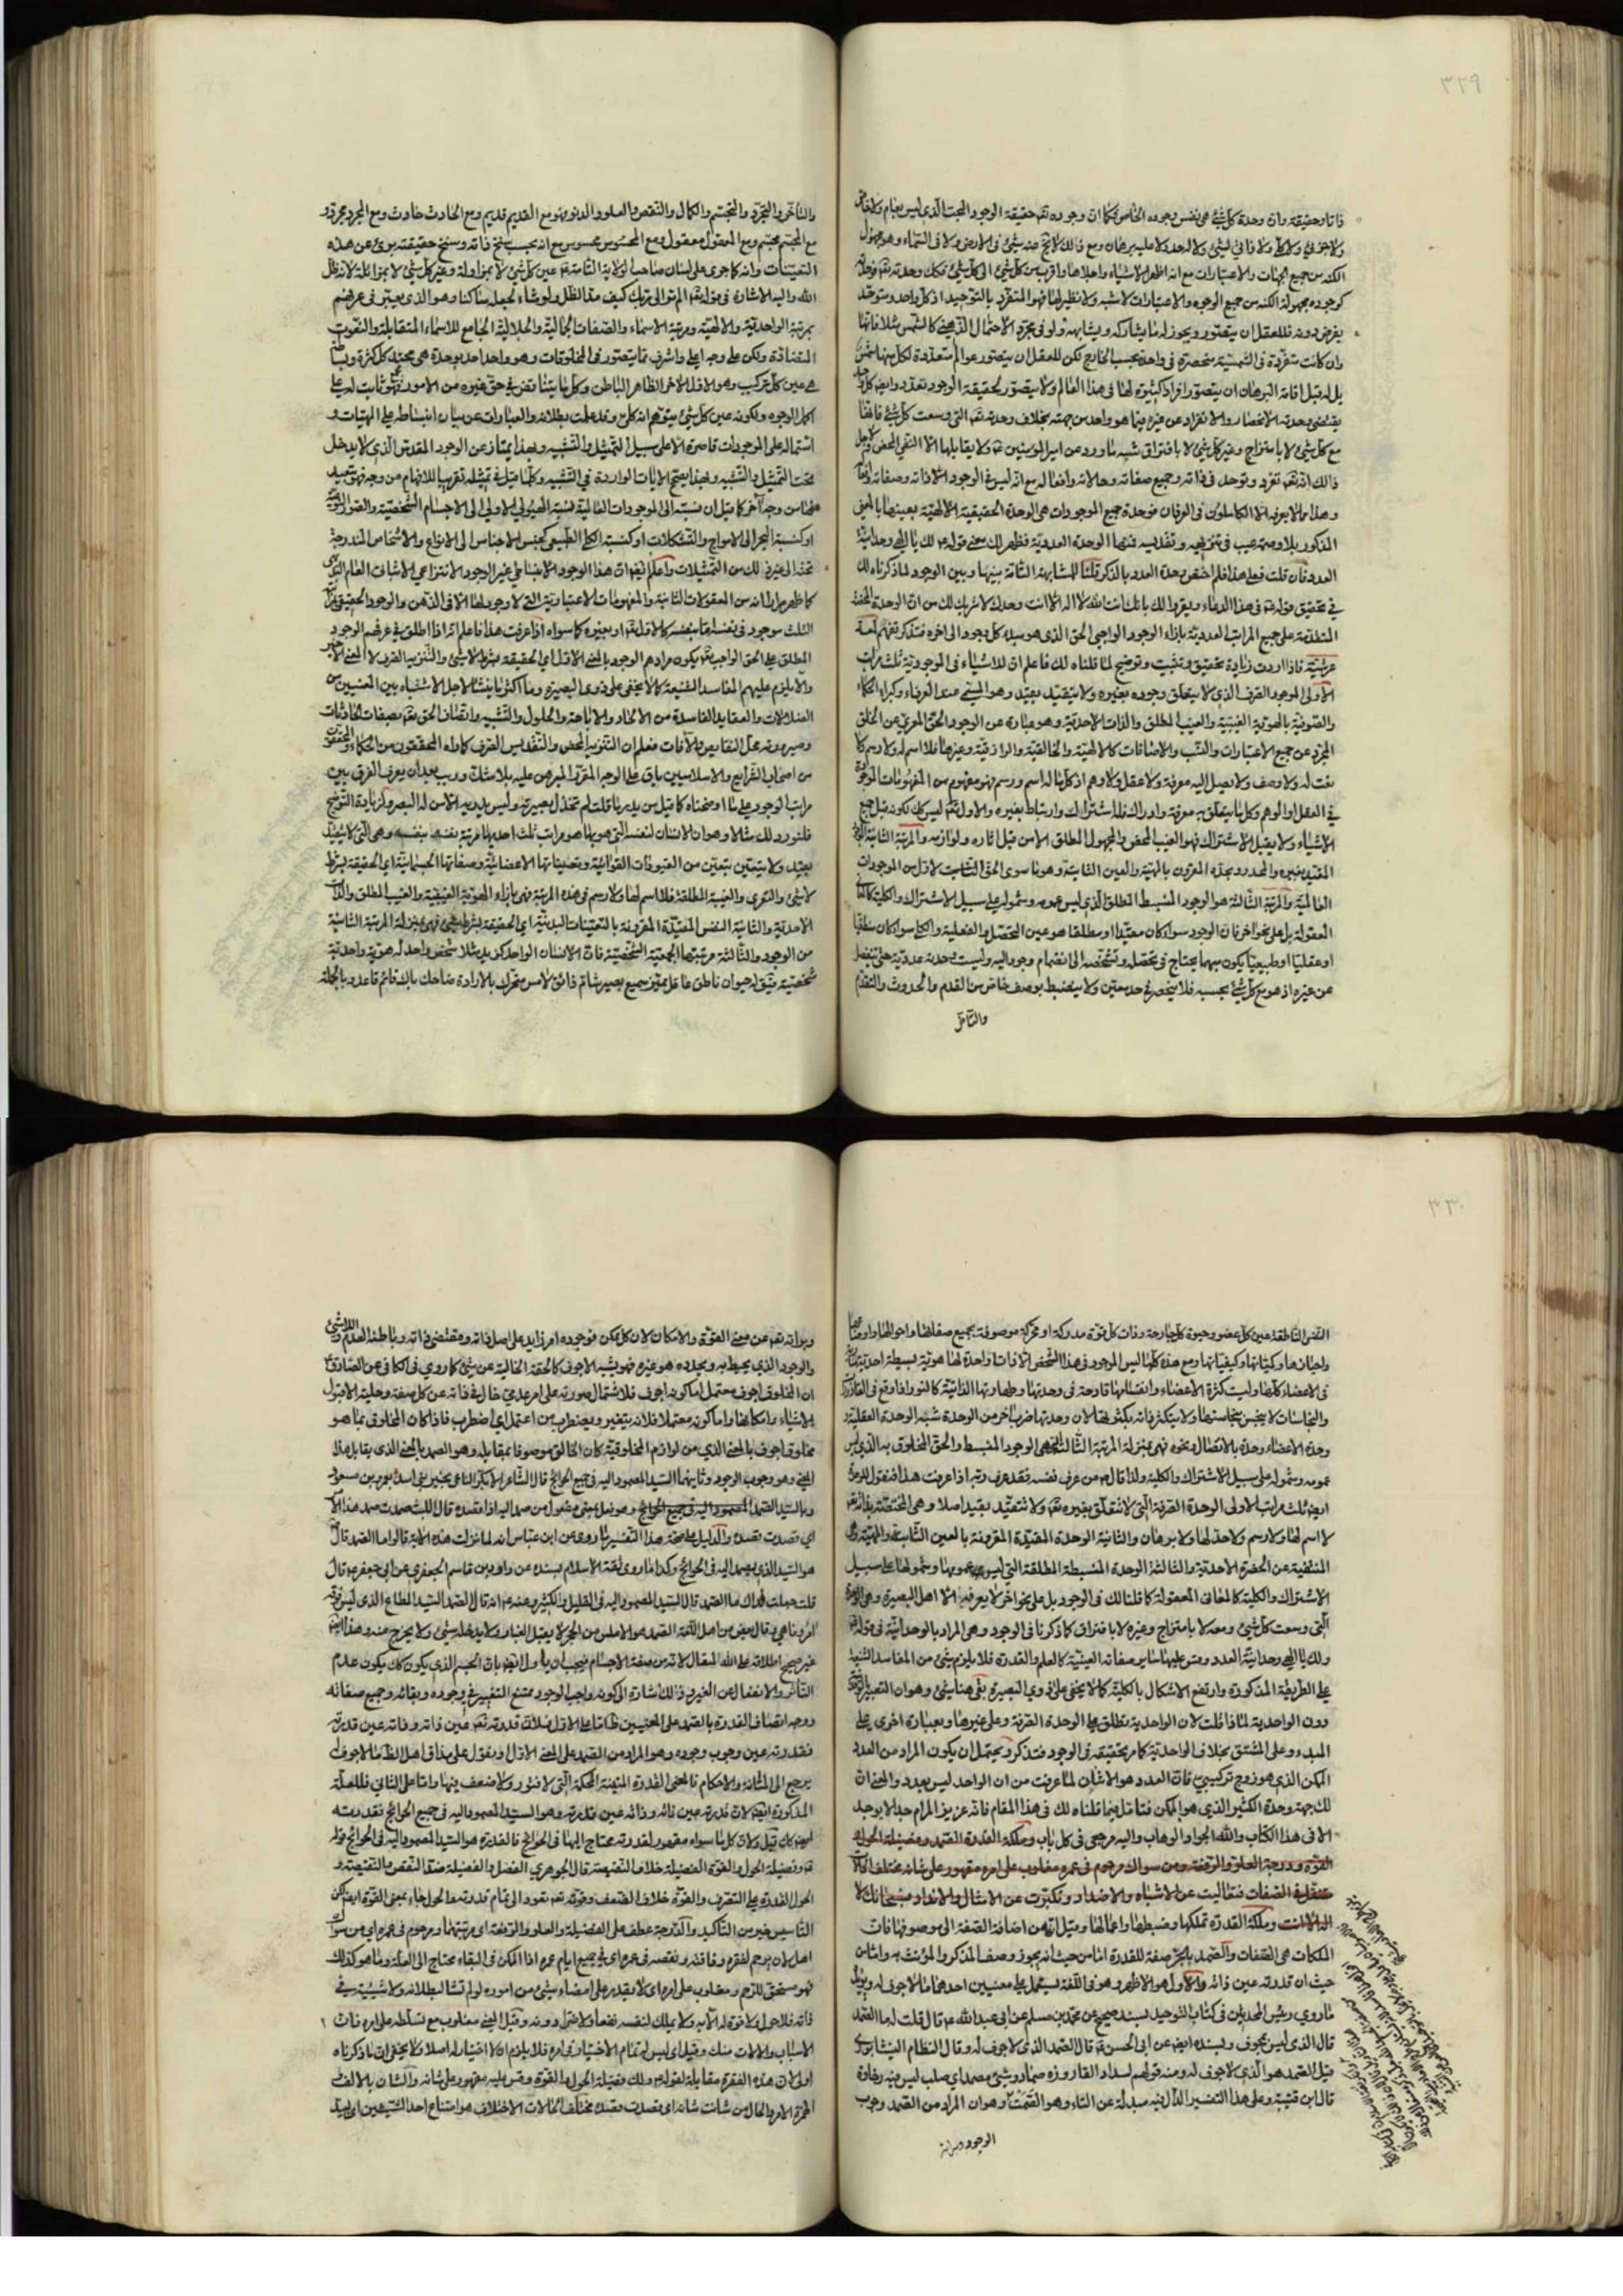 ٣٢٩
ذاتا وحقيقة وان وحدة كل شئ هى نفس وجوده الخاص فكما ان وجوده تعه حقيقة الوجود البحت الذى ليس بعام ولا خاص
ولا جزئى ولا كلى ولا فى شئ ولا له حد ولا عليه برهان ومع ذلك لا يخ منه شئ فى الارض ولا فى السماء وهو مجهول
الكنه من جميع الجهات والاعتبارات مع انه اظهر الاشياء واجلاها واقرب من كل شئ الى كل شئ فكك وحدته تعه
كوجوده مجهولة الكنه من جميع الوجوه والاعتبارات لا شبه ولا نظير لها فهو المتفرد بالتوحيد اذ كل واحد ومتوحد
يفرض دونه فللعقل ان يتصور ويجوز له ما يشاركه ويشابهه ولو فى مجرد الاحتمال الذهنى كالشمس مثلا فانها
وان كانت متفردة فى الشمسية منحصرة فى واحدة بحسب الخارج لكن للعقل ان يتصور عوالم متعددة لكل منها شمس
بل له قبل اقامة البرهان ان يتصور افراد كثيرة لها فى هذا العالم ولا يتصور لحقيقة الوجود تعدد وايضا كل واحد
يقتضى وحدته الانحصار والانفراد عن غيره فيما هو واحد من جهته بخلاف وحدته تعه التى وسعت كل شئ فانها
مع كل شئ لا بامتزاج وغير كل شئ لا بافتراق شبه ما ورد عن امير المؤمنين ع ولا يقابلها الا النفى المحض
ذلك انه تعه تفرد وتوحد فى ذاته وجميع صفاته وحالاته وافعاله مع انه ليس فى الوجود الا ذاته وصفاته وافعاله
وهذا ما لا يعرفه الا الكاملون فى العرفان فوحدة جميع الموجودات هى الوحدة الحقيقية الالهية بعينها بالمعنى
المذكور بلا وصمة عيب فى تنزيهه وتقديسه فمنها الوحدة العددية فظهر لك معنى قوله ع لك يا الهى وحدانية
العدد فان قلت فعلى هذا فلم اختص وحدة العدد بالذكر قلنا للمشابهة التامة بينها وبين الوجود لما ذكرناه لك
فى تحقيق قوله ع فى هذا الدعاء ويقروا لك بانك انت الله لا اله الا انت وحدك لا شريك لك من ان الوحدة المحضة
المتقدمة على جميع المراتب العددية بازاء الوجود الواجبى الحق الذى هو مبدء كل وجود الى اخره فتذكر تفهم لمعة
عرشية فاذا اردت زيادة تحقيق وتثبيت وتوضيح لما قلناه لك فاعلم ان للاشياء فى الموجودية ثلث مراتب
الاولى الموجود الصرف الذى لا يتعلق وجوده بغيره ولا يتقيد بقيد وهو المسمى عند العرفاء وكبراء الحكماء
والصوفية بالهوية الغيبية والغيب المطلق والذات الاحدية وهو عبارة عن الوجود الحق المعرى عن الخلق
المجرد عن جميع الاعتبارات والنسب والاضافات كالالهية والخالقية والرازقية وغيرها فلا اسم له ولا رسم كما
نعت له ولا وصف ولا يصل اليه معرفة ولا عقل ولا وهم اذ كل ما له اسم ورسم فهو مفهوم من المفهومات الموجودة
فى العقل او الوهم وكل ما يتعلق به معرفة وادراك فله اشتراك وارتباط بغيره والاول تعه ليس كك لكونه قبل جميع
الاشياء ولا يقبل الاشتراك فهو الغيب المحض والمجهول المطلق الا من قبل اثاره ولوازمه والمرتبة الثانية
المقيد بغيره والمحدود بحده المقرون بالمهية والعين الثابتة وهو ما سوى الحق الثابت لا زال من الموجودات
العالمية والمرتبة الثالثة هو الوجود المنبسط المطلق الذى ليس عمومه وشموله على سبيل الاشتراك والكلية كالمعانى
المعقولة بل على نحو اخر فان الوجود سواء كان مقيدا او مطلقا هو عين التحصل والفعلية والكلى سواء كان منطقيا
او عقليا او طبيعيا يكون مبهما يحتاج فى تحصله وتشخصه الى انضمام وجود اليه وليست وحدته عددية حتى ينفصل
عن غيره اذ هو مع كل شئ بحسبه فلا ينحصر فى حد معين ولا ينضبط بوصف خاص من القدم والحدوث والتقدم
والتاخر
والتاخر والتجرد والتجسم والكمال والنقص والعلو والدنو فهو مع القديم قديم ومع الحادث حادث ومع المجرد مجرد و
مع المجسم مجسم ومع المعقول معقول ومع المحسوس محسوس مع انه بحسب سنخ ذاته وسنخ حقيقته برئ عن هذه
التعينات وانه كما جرى على لسان صاحب الولاية التامة ع عين كل شئ لا بمزاولة وغير كل شئ لا بمزائلة لانه ظل
الله واليه الاشارة فى قوله تعه الم تر الى ربك كيف مد الظل ولو شاء لجعله ساكنا وهو الذى يعبر فى عرفهم
بمرتبة الواحدية والالهية ومرتبة الاسماء والصفات الجمالية والجلالية الجامع للاسماء المتقابلة والنعوت
المتضادة ولكن على وجه اعلى واشرف مما يتصور فى المخلوقات وهو واحد احد بوحدة هى مجتمع كل كثرة
هى عين كل تركيب وهو الاول الاخر الظاهر الباطن وكل ما يتناقض فى حق غيره من الامور فهو ثابت له على
اكمل الوجوه ولكونه عين كل شئ يتوهم انه كلى وقد علمت بطلانه والعبارات عن بيان انبساطه على المهيات و
اشتماله على الموجودات قاصرة الا على سبيل التمثيل والتشبيه وبهذا يمتاز عن الوجود المقدس الذى لا يدخل
تحت التمثيل والتشبيه وبهذا يصح الايات الواردة فى التشبيه وكلما قيل فى تمثيله تقريبا للافهام من وجه فهو تبعيد
عنها من وجه آخر كما قيل ان نسبته الى الموجودات العالمية نسبة الهيولى الاولى الى الاجسام الشخصية والصور النوعية
او كنسبة البحر الى الامواج والتشكلات او كنسبة الكلى الطبيعى كجنس الاجناس الى الانواع والاشخاص المندرجة
تحته الى غير ذلك من التمثيلات واعلم ايضا ان هذا الوجود الانبساطى غير الوجود الانتزاعى الاثباتى العام
كما ظهر مرارا انه من المعقولات الثانية والمفهومات الاعتبارية التى لا وجود لها الا فى الذهن والوجود الحقيقى
الثلث موجود فى نفسه اما بنفسه كالاول تعه او بغيره كما سواه اذا عرفت هذا فاعلم انه اذا اطلق فى عرفهم الوجود
المطلق على الحق الواجب تعه يكون مرادهم الوجود بالمعنى الاول اى الحقيقة بشرط لا شئ والتنزيه الصرف لا المعنى الاخير
والا يلزم عليهم المفاسد الشنيعة كما لا يخفى على ذوى البصيرة وما اكثر ما ينشأ لاجل الاشتباه بين المعنيين من
الضلالات والعقايد الفاسدة من الالحاد والاباحة والحلول والتشبيه واتصاف الحق تعه بصفات الحادثات
وصيرورته محل النقايص والآفات فعلم ان التنزيه المحض والتقديس الصرف كما راه المحققون من الحكماء
من اصحاب الشرايع والاسلاميين باق على الوجه المقرر المبرهن عليه بلا شك وريب بعد ان يعرف الفرق بين
مراتب الوجود على ما اوضحناه
فلنورد لك مثلا وهو ان للانسان لنفسه التى هو بها هو مراتب ثلث احديها مرتبة نفسه بنفسه وهى التى لا يتقيد
بقيد ولا يتعين بتعين من القيودات القوائية وتعيناتها الاعضائية وصفاتها الجسمانية اى الحقيقة بشرط
لا شئ والتعرى والغيبة المطلقة فلا اسم لها ولا رسم فى هذه المرتبة فهى بازاء الهوية الغيبية والغيب المطلق والذات
الاحدية والثانية النفس المقيدة المقرونة بالتعينات البدنية اى الحقيقة بشرط شئ فهى بمنزلة المرتبة الثانية
من الوجود والثالثة مرتبتها الجمعية الشخصية فان الانسان الواحد كزيد مثلا شخص واحد له هوية واحدية
شخصية يق له حيوان ناطق عاقل مميز سميع بصير شام ذائق لامس متحرك بالارادة ضاحك باك قائم قاعد وبالجملة
٣٣٠
النفس الناطقة عين كل عضو وحيوة كل جارحة وذات كل قوة مدركة او محركة موصوفة بجميع صفاتها واحوالها
واحيازها وكمياتها وكيفياتها ومع هذه كلها ليس الموجود فى هذا الشخص الا ذاتا واحدة لها هوية بسيطة احدية
فى الاعضاء كلها وليست كثرة الاعضاء وانقسامها قادحة فى وحدتها وطهارتها الذاتية كالنور اذا وقع فى القاذورات
والنجاسات لا ينجس بنجاستها ولا يتكثر ذاته بكثرتها لان وحدتها ضرب اخر من الوحدة شبه الوحدة العقلية
وحدة الاعضاء وحدة بالاتصال ونحوه فهى بمنزلة المرتبة الثالثة هى الوجود المنبسط والحق المخلوق به الذى ليس
عمومه وشموله على سبيل الاشتراك والكلية ولذا قال ع من عرف نفسه فقد عرف ربه اذا عرفت هذا فنقول للوحدة
ايضا ثلث مراتب الاولى الوحدة الصرفة التى لا تتعلق بغيره تعه ولا تتقيد بقيد اصلا وهى المختصة بذاته
لا اسم لها ولا رسم ولا حد لها ولا برهان والثانية الوحدة المقيدة المقرونة بالعين الثابتة والمهية
المنتفية عن الحضرة الاحدية والثالثة الوحدة المنبسطة المطلقة التى ليس عمومها وشمولها على سبيل
الاشتراك والكلية كالمعانى المعقولة كما قلنا لك فى الوجود بل على نحو اخر لا يعرفه الا اهل البصيرة وهى
التى وسعت كل شئ ومعه لا بامتزاج وغيره لا بافتراق كما ذكرنا فى الوجود وهى المراد بالوحدانية فى قوله
ولك يا الهى وحدانية العدد وقس عليها ساير صفاته العينية كالعلم والقدرة فلا يلزم شئ من المفاسد الشنيعة
على الطريقة المذكورة وارتفع الاشكال بالكلية كما لا يخفى على ذوى البصيرة بقى هنا شئ وهو ان التعبير
دون الواحدية لماذا قلت لان الواحدية تطلق على الوحدة الصرفة وعلى غيرها وبعبارة اخرى على
المبدء وعلى المشتق بخلاف الواحدية كما مر تحقيقه فى الوجود فتذكر ويحتمل ان يكون المراد من العدد
الممكن الذى هو زوج تركيبى فان العدد هو الاثنان لما عرفت من ان الواحد ليس بعدد والمعنى ان
لك جهة وحدة الكثير الذى هو الممكن فتامل فيما قلناه لك فى هذا المقام فانه عزيز المرام جدا لا يوجد
الا فى هذا الكتاب والله الجواد الوهاب واليه مرجعى فى كل باب وملكة القدرة الصمد وفضيلة الحول و
القوة ودرجة العلو والرفعة ومن سواك مرحوم فى عمره مغلوب على امره مقهور على شانه مختلف الحالات
متنقل فى الصفات فتعاليت عن الاشباه والاضداد وتكبرت عن الامثال والانداد فسبحانك لا
اله الا انت وملكة القدرة تملكها وضبطها واعمالها وقيل انه من اضافة الصفة الى موصوفها فان
الملكات هى الصفات والصمد بالجر صفة للقدرة اما من حيث انه يجوز وصف المذكر والمؤنث به واما من
حيث ان قدرته عين ذاته والاول هو الاظهر وهو فى اللغة يستعمل على معنيين احدهما ما لا جوف له ويؤيد
ما روى رئيس المحدثين فى كتاب التوحيد بسند صحيح عن محمد بن مسلم عن ابى عبد الله ع قال قلت له ما الصمد
قال الذى ليس بمجوف وبسنده ايضا عن ابى الحسن ع قال الصمد الذى لا جوف له وقال النظام النيشابورى
قيل الصمد هو الذى لا جوف له ومنه قولهم لسداد القارورة صماد وشئ مصمد اى صلب ليس فيه رخاوة
قال ابن قتيبة وعلى هذا التفسير الدال فيه مبدلة عن التاء وهو الصمت وهو ان المراد من الصمد وجوب
الوجود وبراءته
وبراءته تعه عن معنى القوة والامكان لان كل ممكن فوجوده امر زايد على اصل ذاته ومقتضى ذاته وباطنه العدم واللاشئ
والوجود الذى يحيط به ويحدده هو غيره فهو يشبه الاجوف كالحقة الخالية عن شئ كما روى فى الكافى عن الصادق ع
ان المخلوق اجوف معتمل اما كونه اجوف فلاشتمال صورته على امر عدمى خال فى ذاته عن كل صفة وحلية الا قبول
الاشياء وامكانها واما كونه معتملا فلانه يتغير ويضطرب من اعتمل اى اضطرب فاذا كان المخلوق بما هو
مخلوق اجوف بالمعنى الذى من لوازم المخلوقية كان الخالق موصوفا بمقابله وهو الصمد بالمعنى الذى يقابل هذا
المعنى وهو وجوب الوجود وثانيهما السيد المصمود اليه فى جميع الحوائج قال الشاعر الا بكر الناعى بخيرى بنى اسد بعمرو بن مسعود
وبالسيد الصمد المصمود اليه فى جميع الحوائج وهو فعل بمعنى مفعول من صمد اليه اذا قصده قال الليث صمدت صمد هذا الامر
اى قصدت قصده والدليل على صحة هذا التفسير ما روى عن ابن عباس انه لما نزلت هذه الاية قالوا ما الصمد قال
هو السيد الذى يصمد اليه فى الحوائج وكذا ما روى ثقة الاسلام بسنده عن داود بن قاسم الجعفرى عن ابى جعفر ع قال
قلت جعلت فداك ما الصمد قال السيد المصمود اليه فى القليل والكثير وعنه ع انه قال الصمد السيد المطاع الذى ليس فوقه
امر وناهى وقال بعض من اهل اللغة الصمد هو الاملس من الحجر لا يقبل الغبار ولا يدخله شئ ولا يخرج منه وهذا ايضا
غير صحيح اطلاقه على الله المتعال لانه من صفة الاجسام فيجب ان ياول ايضا بان الجسم الذى يكون كك يكون عديم
التأثر والانفعال عن الغير وذلك اشارة الى كونه واجب الوجود ممتنع التغيير فى وجوده وبقائه وجميع صفاته
ووجه اتصاف القدرة بالصمد على المعنيين ظ اما على الاول فلان قدرته تعه عين ذاته وذاته عين قدرته
فقدرته عين وجوب وجوده وهو المراد من الصمد على المعنى الاول ونقول على مذاق اهل الظاهر ما لا جوف له
يرجع الى المتانة والاحكام فالمعنى القدرة المتقنة المحكمة التى لا فتور ولا ضعف فيها واما على الثانى فللعلة
المذكورة ايضا لان قدرته عين ذاته وذاته عين قدرته وهو السيد المصمود اليه فى جميع الحوائج فقدرته
ايضا كك قيل ولان كل ما سواه مقهور لقدرته محتاج اليها فى الحوائج فالقدرة هو السيد المصمود اليه فى الحوائج قوله
ع وفضيلة الحول والقوة الفضيلة خلاف النقيصة قال الجوهرى الفضل والفضيلة ضد النقص والنقيصة و
الحول القدرة على التصرف والقوة خلاف الضعف وقوته تعه تعود الى تمام قدرته والحول جاء بمعنى القوة ايضا لكن
التاسيس خير من التاكيد والدرجة عطف على الفضيلة والعلو والرفعة اى مرتبتهما ومرحوم فى عمره اى من سواك
اهل لان يرحم لفقره وفاقته ونقصه فى عمره اى فى جميع ايام عمره اذ الممكن فى البقاء محتاج الى العلة وما هو كذلك
فهو مستحق للترحم ومغلوب على امره اى لا يقدر على امضاء شئ من اموره لو لم تشأ لبطلانه ولا شيئية فى
ذاته فلا حول ولا قوة له الا به ولا يملك لنفسه نفعا ولا ضرا دونه وقيل المعنى مغلوب مع تسلطه على امره فان
الاسباب والالات منك وقيل اى ليس له تمام الاختيار فى امره فلا يلزم ان لا اختيار له اصلا ولا يخفى ان ما ذكرناه
اولى لان هذه الفقرة مقابلة لقوله ع ولك فضيلة الحول والقوة وقس عليه مقهور على شانه والشان بالالف
الهمزة الامر والحال من شانت شانه اى قصدت قصده مختلف الحالات الاختلاف هو امتناع احد الشيئين ان يسد